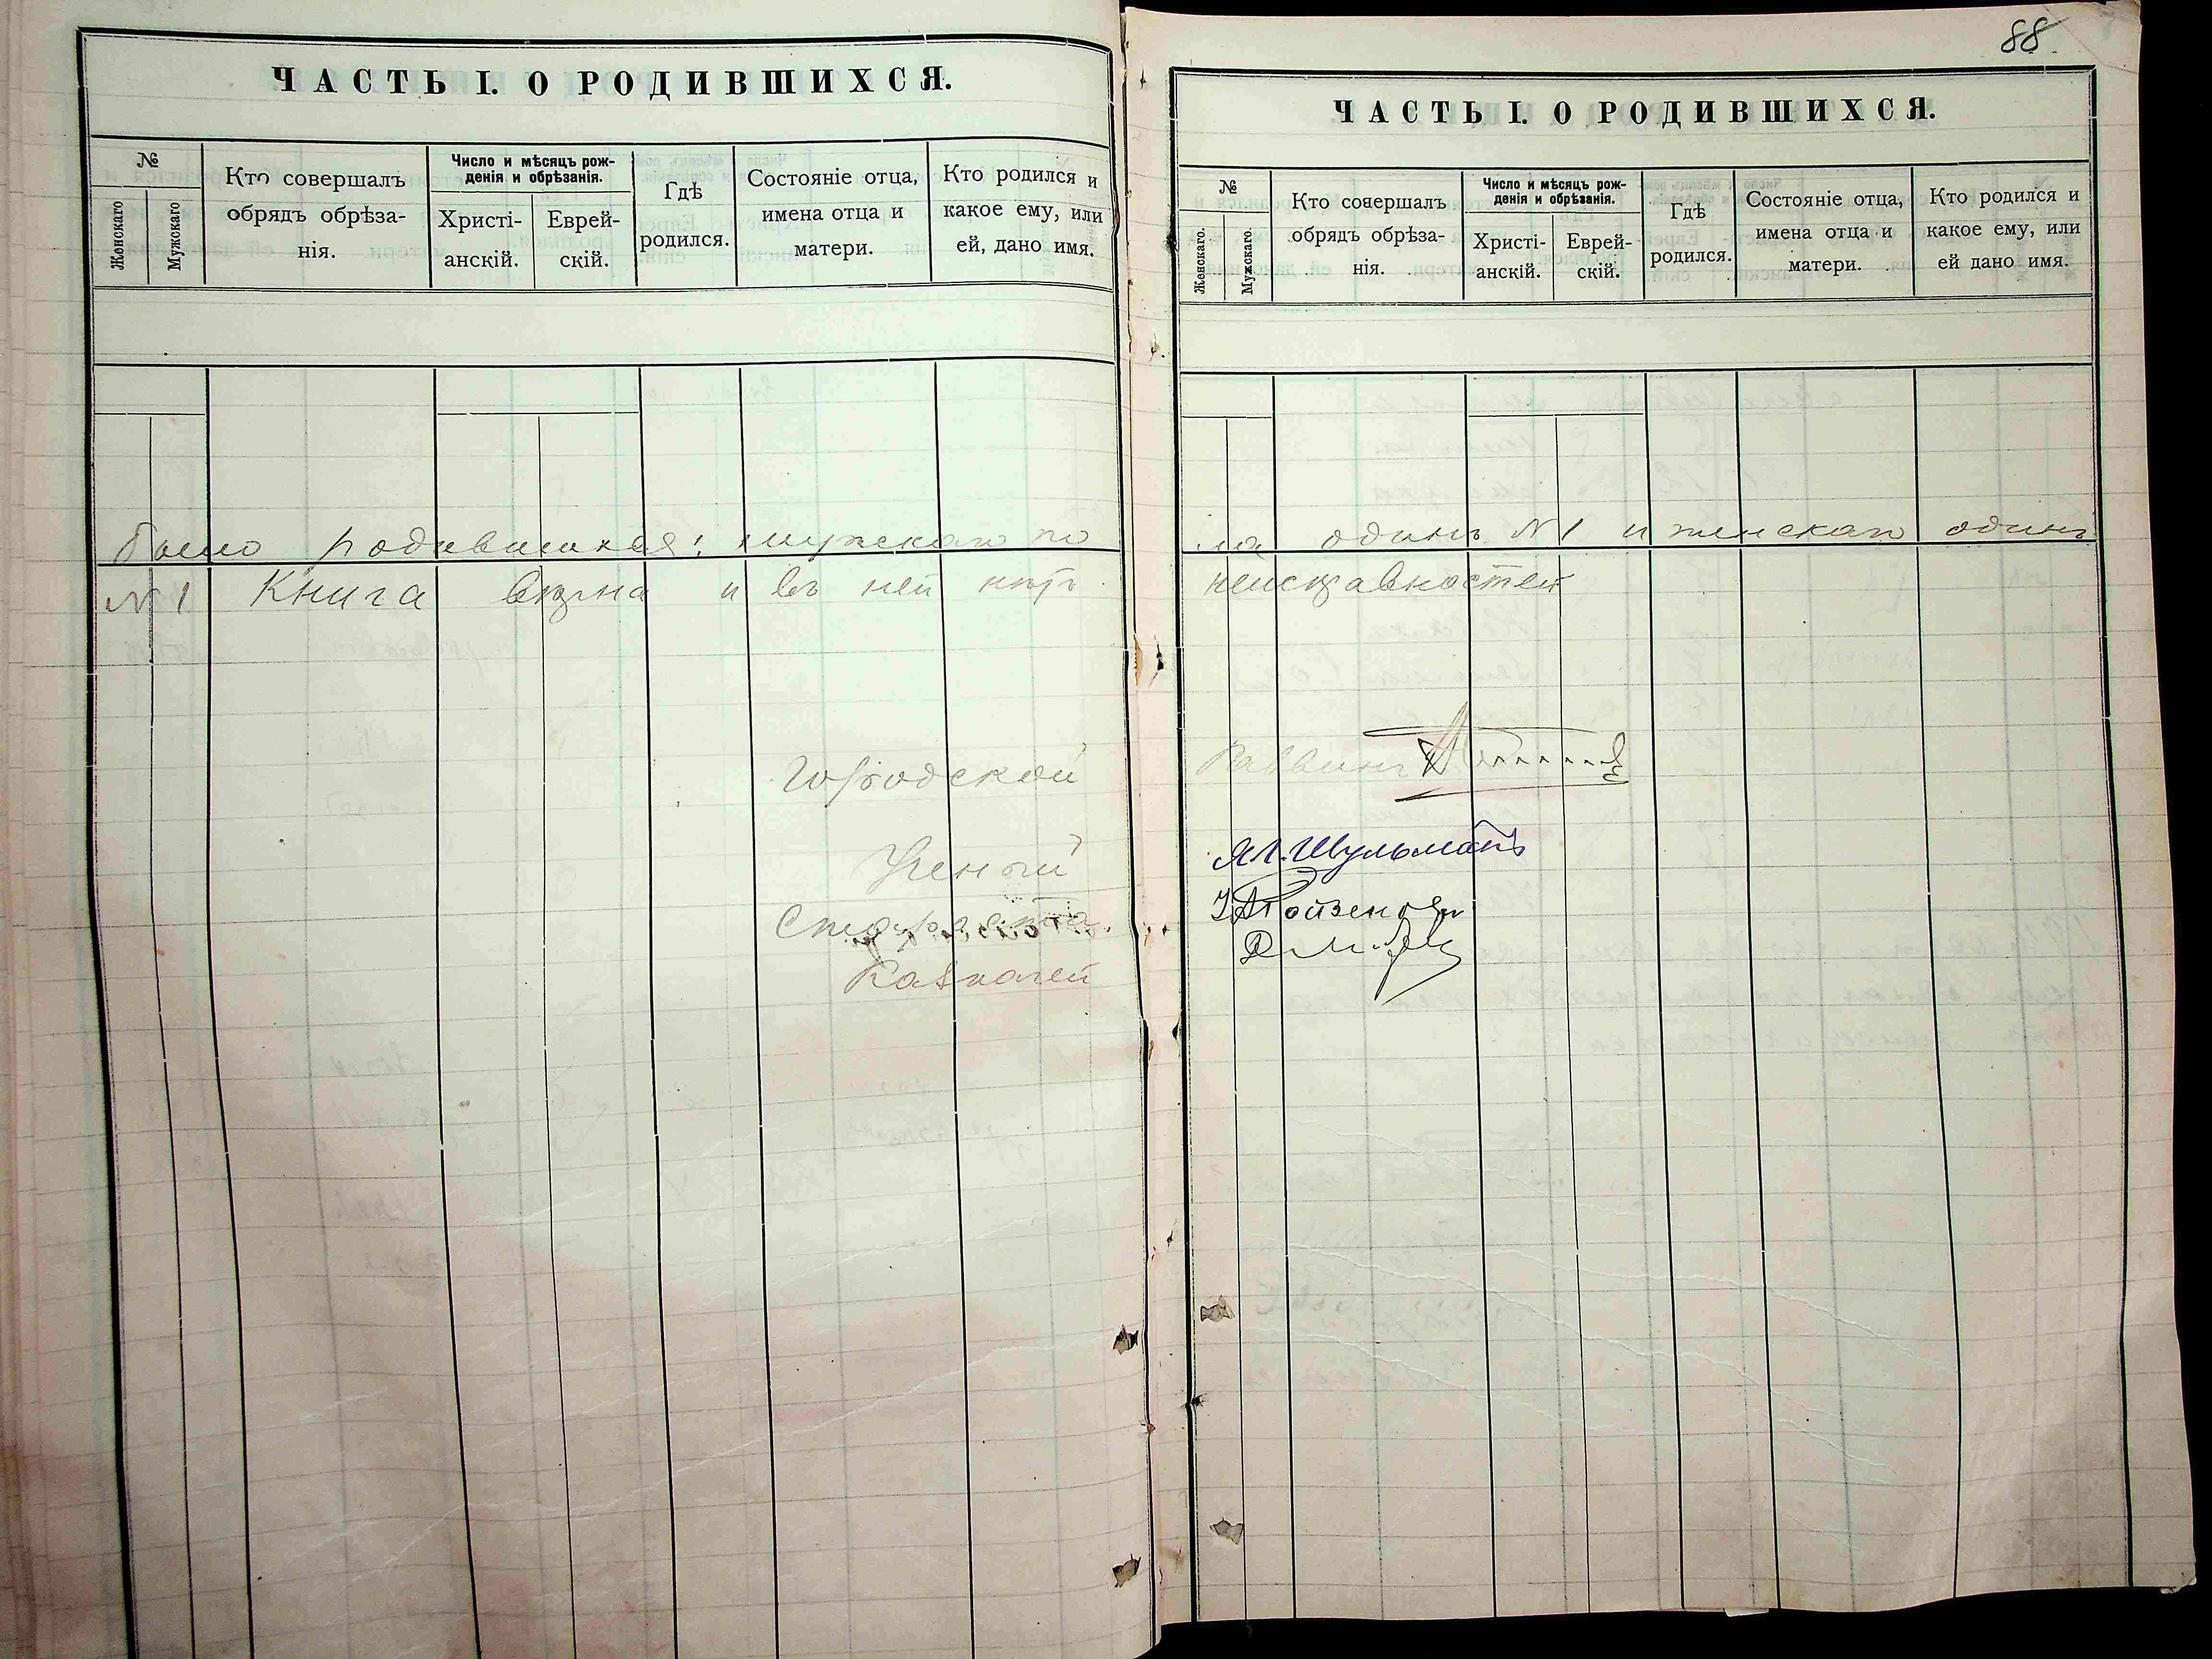 ЧАСТЬ I. О РОДИВШИХСЯ.
№
Женскаго
Мужскаго
Кто совершалъ
обрядъ обрѣза-
нія.
Число и мѣсяцъ рож-
денія и обрѣзанія.
Христі-
анскій.
Еврей-
скій.
Гдѣ
родился.
Состояніе отца,
имена отца и
матери.
Кто родился и
какое ему, или
ей, дано имя.
было родившихся: мужскаго по
№ 1 Книга вѣрна и въ ней нѣтъ
Городской
Ученый
Староста
Казначей
88.
ЧАСТЬ I. О РОДИВШИХСЯ.
№
Женскаго.
Мужскаго.
Кто совершалъ
обрядъ обрѣза-
нія.
Число и мѣсяцъ рож-
денія и обрѣзанія.
Христі-
анскій.
Еврей-
скій.
Гдѣ
родился.
Состояніе отца,
имена отца и
матери.
Кто родился и
какое ему, или
ей дано имя.
ла одинъ № 1 и женскаго одинъ
неисправностей
Раввинъ
Шульманъ